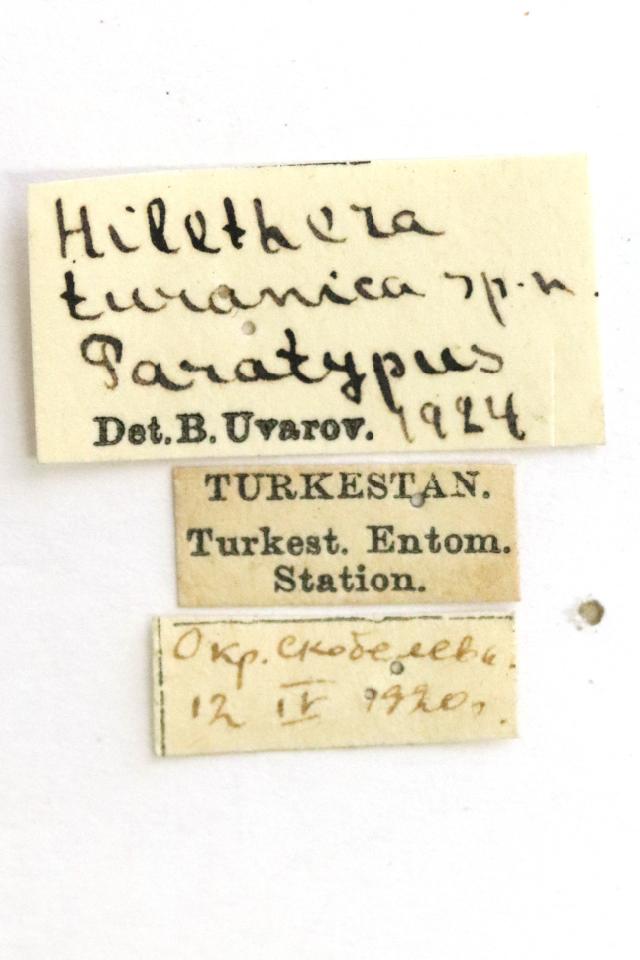 Hilethera
turanica sp.n.
Paratypus
Det. B. Uvarov. 1924
TURKESTAN.
Turkest. Entom.
Station.
Окр. Скобелева.
12 IV 1920г.